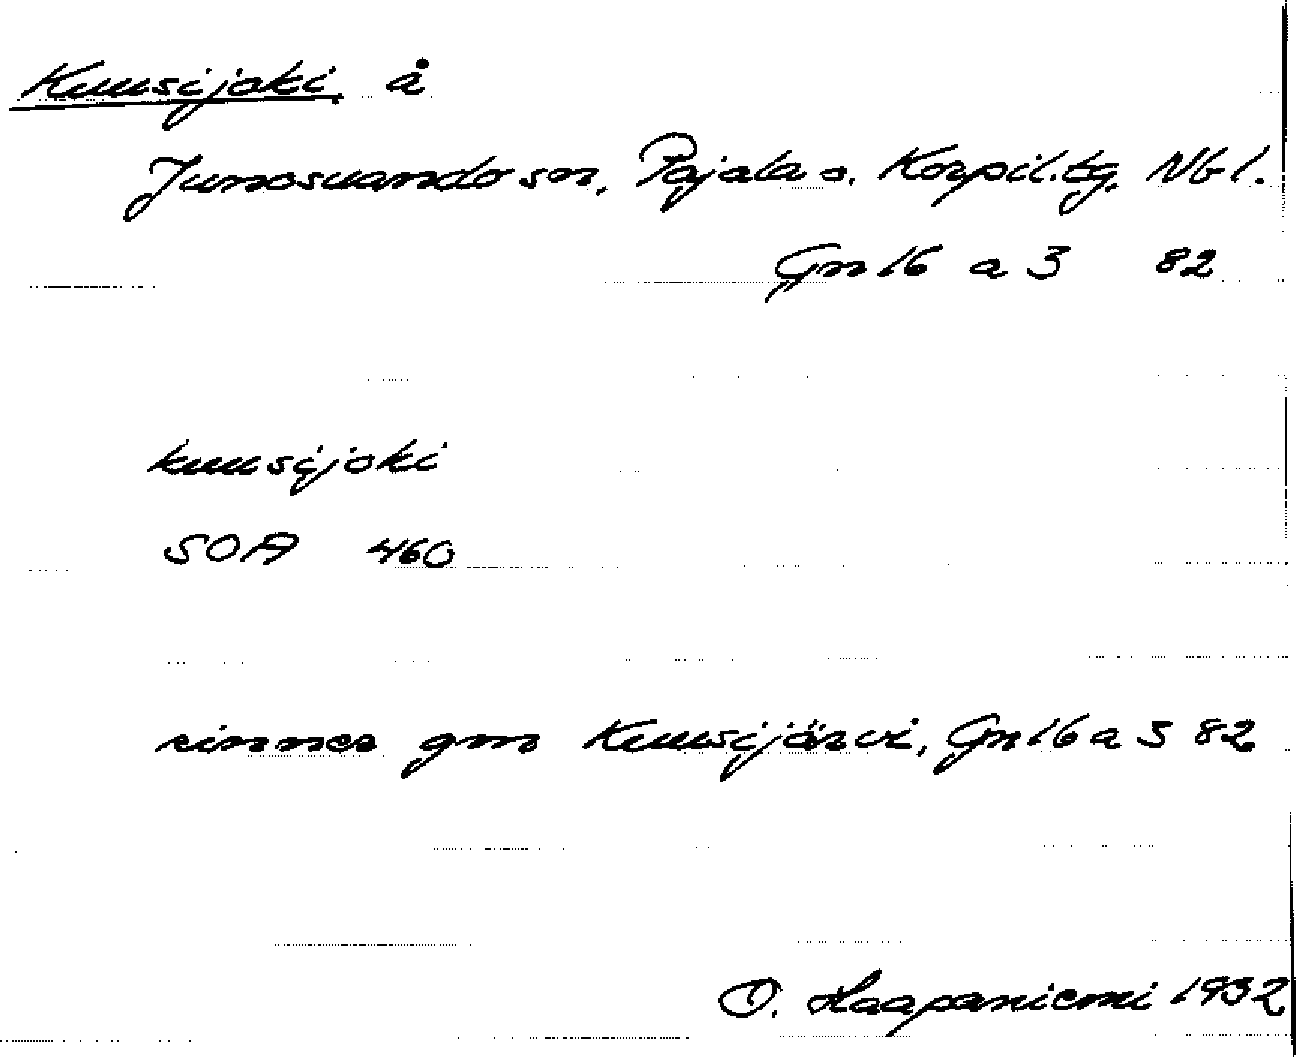 Kuusijoki å
Junosuando sn, Pajala o. Korpil.tg. Nb l.
Gn 16 a 3 82
kuusijoki
SOA 460
rinner gm Kuusijärvi, Gn 16 a 3 82
O. Haapaniemi 1932